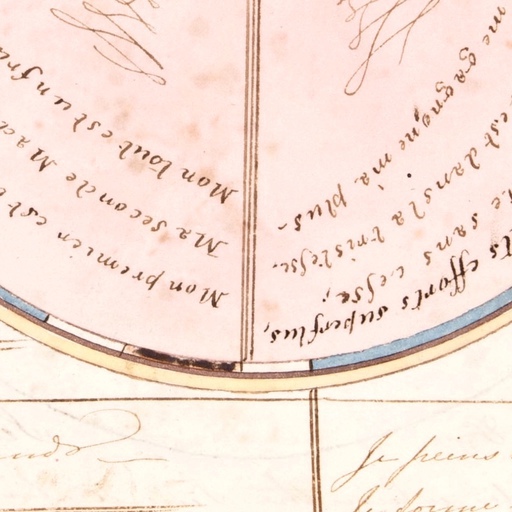 Mon premier est
Ma seconde
Mon tout est un
efforts superflus,
sans cesse;
est dans la tristesse.
me gagne n'a plus.
Je peins
Je forme